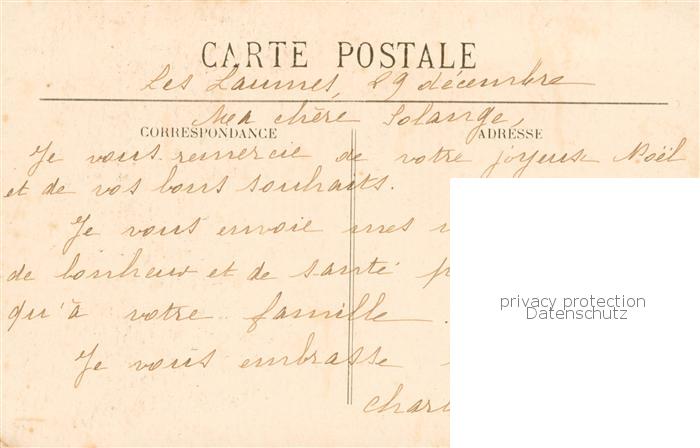 CARTE POSTALE
Les Laumes, 29 décembre
Ma chère Solange,
CORRESPONDANCE ADRESSE
Je vous remercie de votre joyeux Noël
et de vos bons souhaits.
Je vous envoie mes
de bonheur et de santé
qu'à votre famille.
Je vous embrasse
privacy protection
Datenschutz